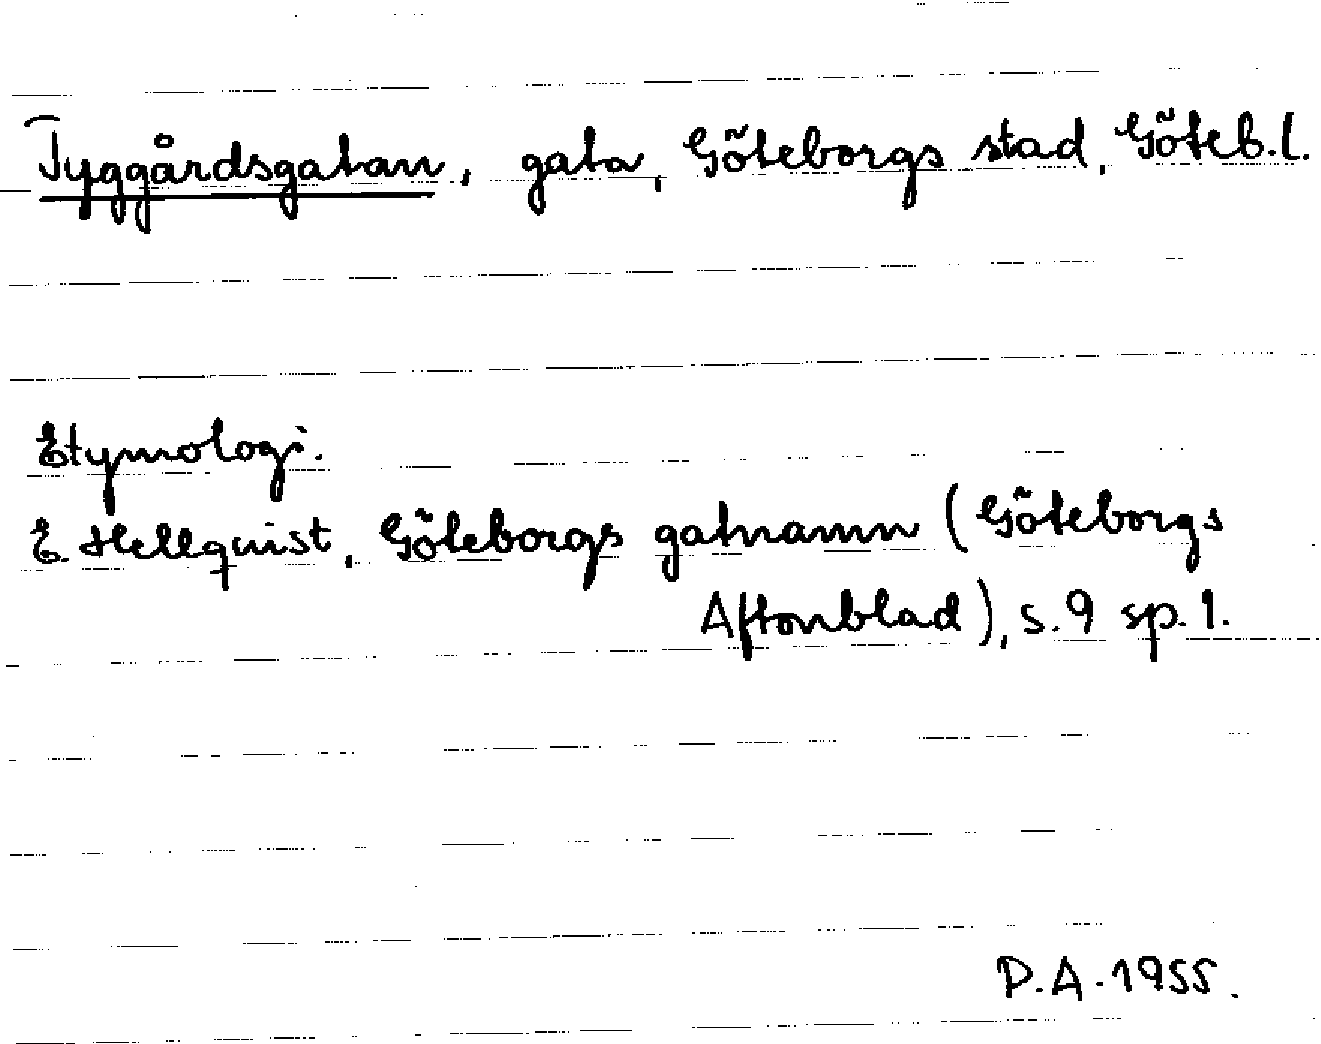 Tyggårdsgatan, gata, Göteborgs stad, Göteb.l.
Etymologi.
E. Hellquist, Göteborgs gatnamn (Göteborgs
Aftonblad), s.9 sp.1.
P.A.1955.